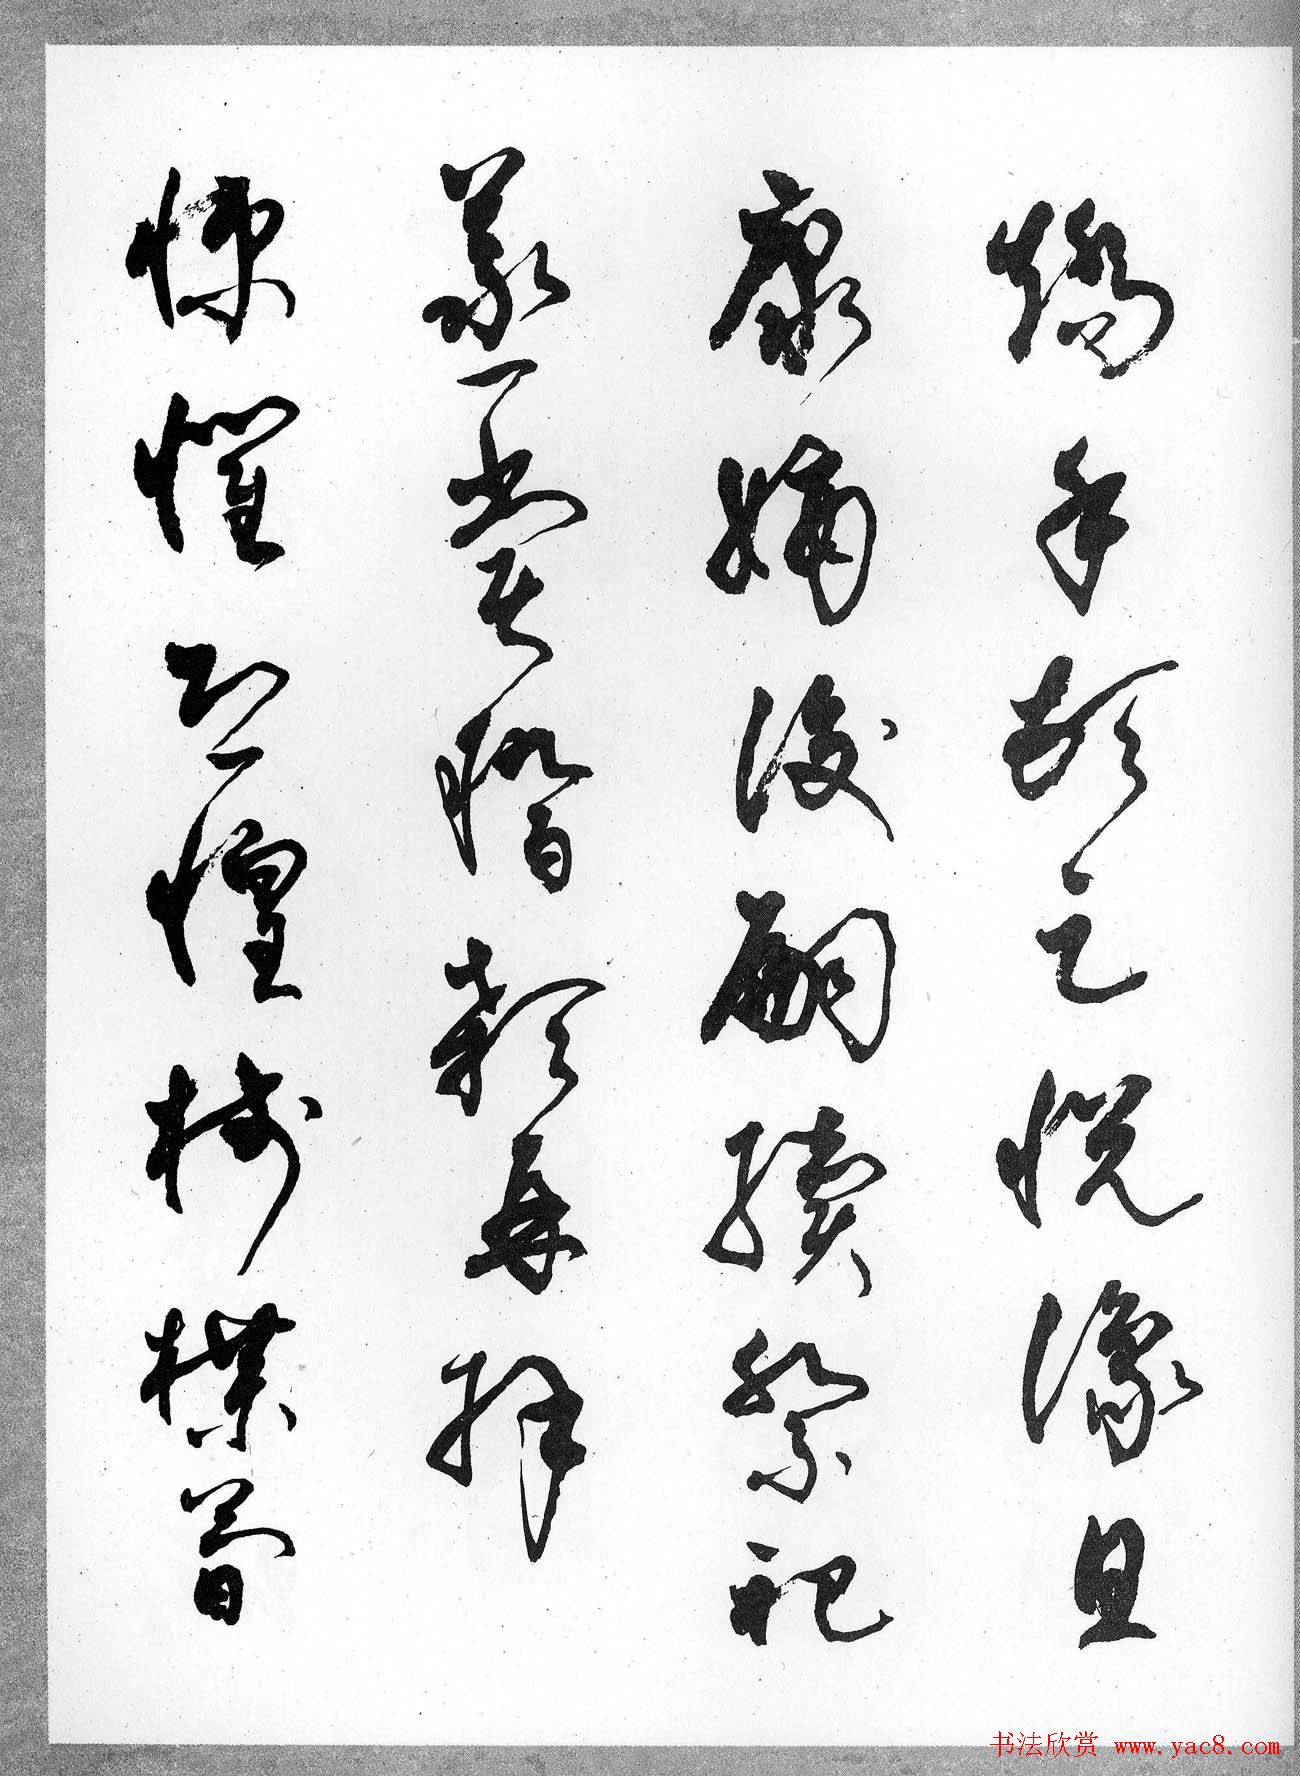 矯手頓足悅豫且
康嫡後嗣續祭祀
蒸嘗稽顙再拜
悚懼恐惶牋牒簡
书法欣赏 www.yac8.com